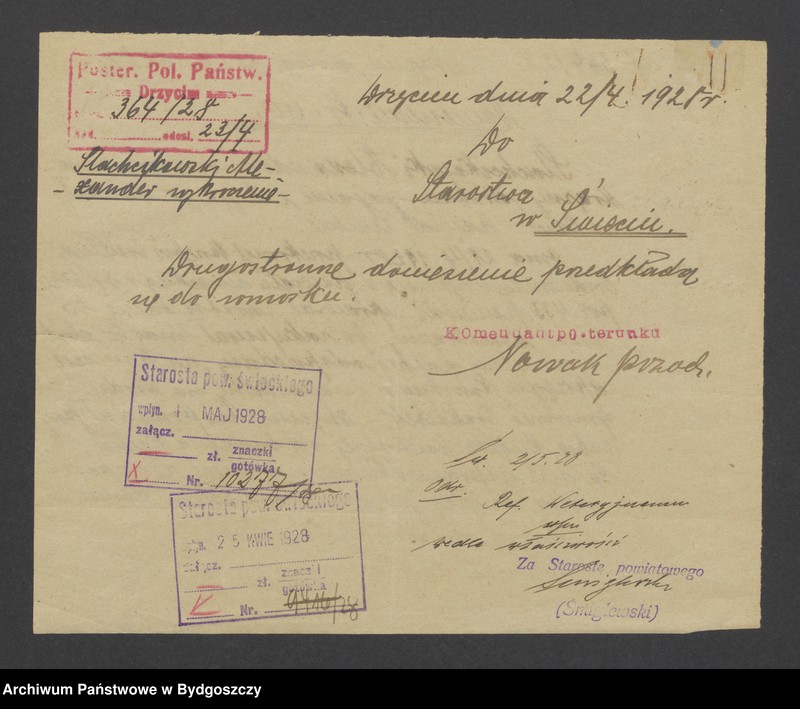 Poster. Pol. Państw.
Drzycim
364/28
odesł. 23/4
Drzycim dnia 22/4. 1928 r.
Do
Starostwa
w Świeciu.
Alexander wykroczenie
Drugostronne doniesienie przedkłada
się do wniosku.
Komendant po.terunku
Nowak przod.
Starosta pow. świeckiego
wpłyn. 1 MAJ 1928
załącz.
zł. znaczki
gotówka
Nr. 10277/28
Starosta pow. świeckiego
wpłyn. 25 KWIE 1928
załącz.
zł. znaczki
gotówka
Nr. /28
Św. 2/5.28
Odw.
Ref. Weterynaryjnemu
wedle właściwości
Za Starostę powiatowego
(Śmiglewski)
Archiwum Państwowe w Bydgoszczy